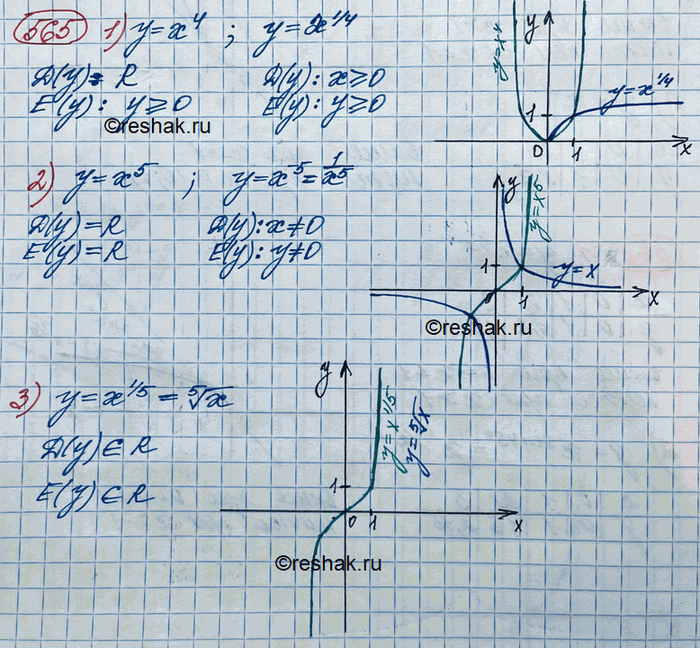 565 1) y=x⁴ ; y=x^1/4
D(y)=R D(y): x⩾0
E(y): y⩾0 E(y): y⩾0
©reshak.ru
y=x⁴ y y=x^1/4 1 0 1 x
2) y=x⁵ ; y=x⁻⁵=1/x⁵
D(y)=R D(y): x≠0
E(y)=R E(y): y≠0
y y=x5 1 y=x 0 1 x
©reshak.ru
3) y=x^1/5=⁵√x
D(y)∈R
E(y)∈R
y y=x^1/5 y=⁵√x 1 0 1 x
©reshak.ru